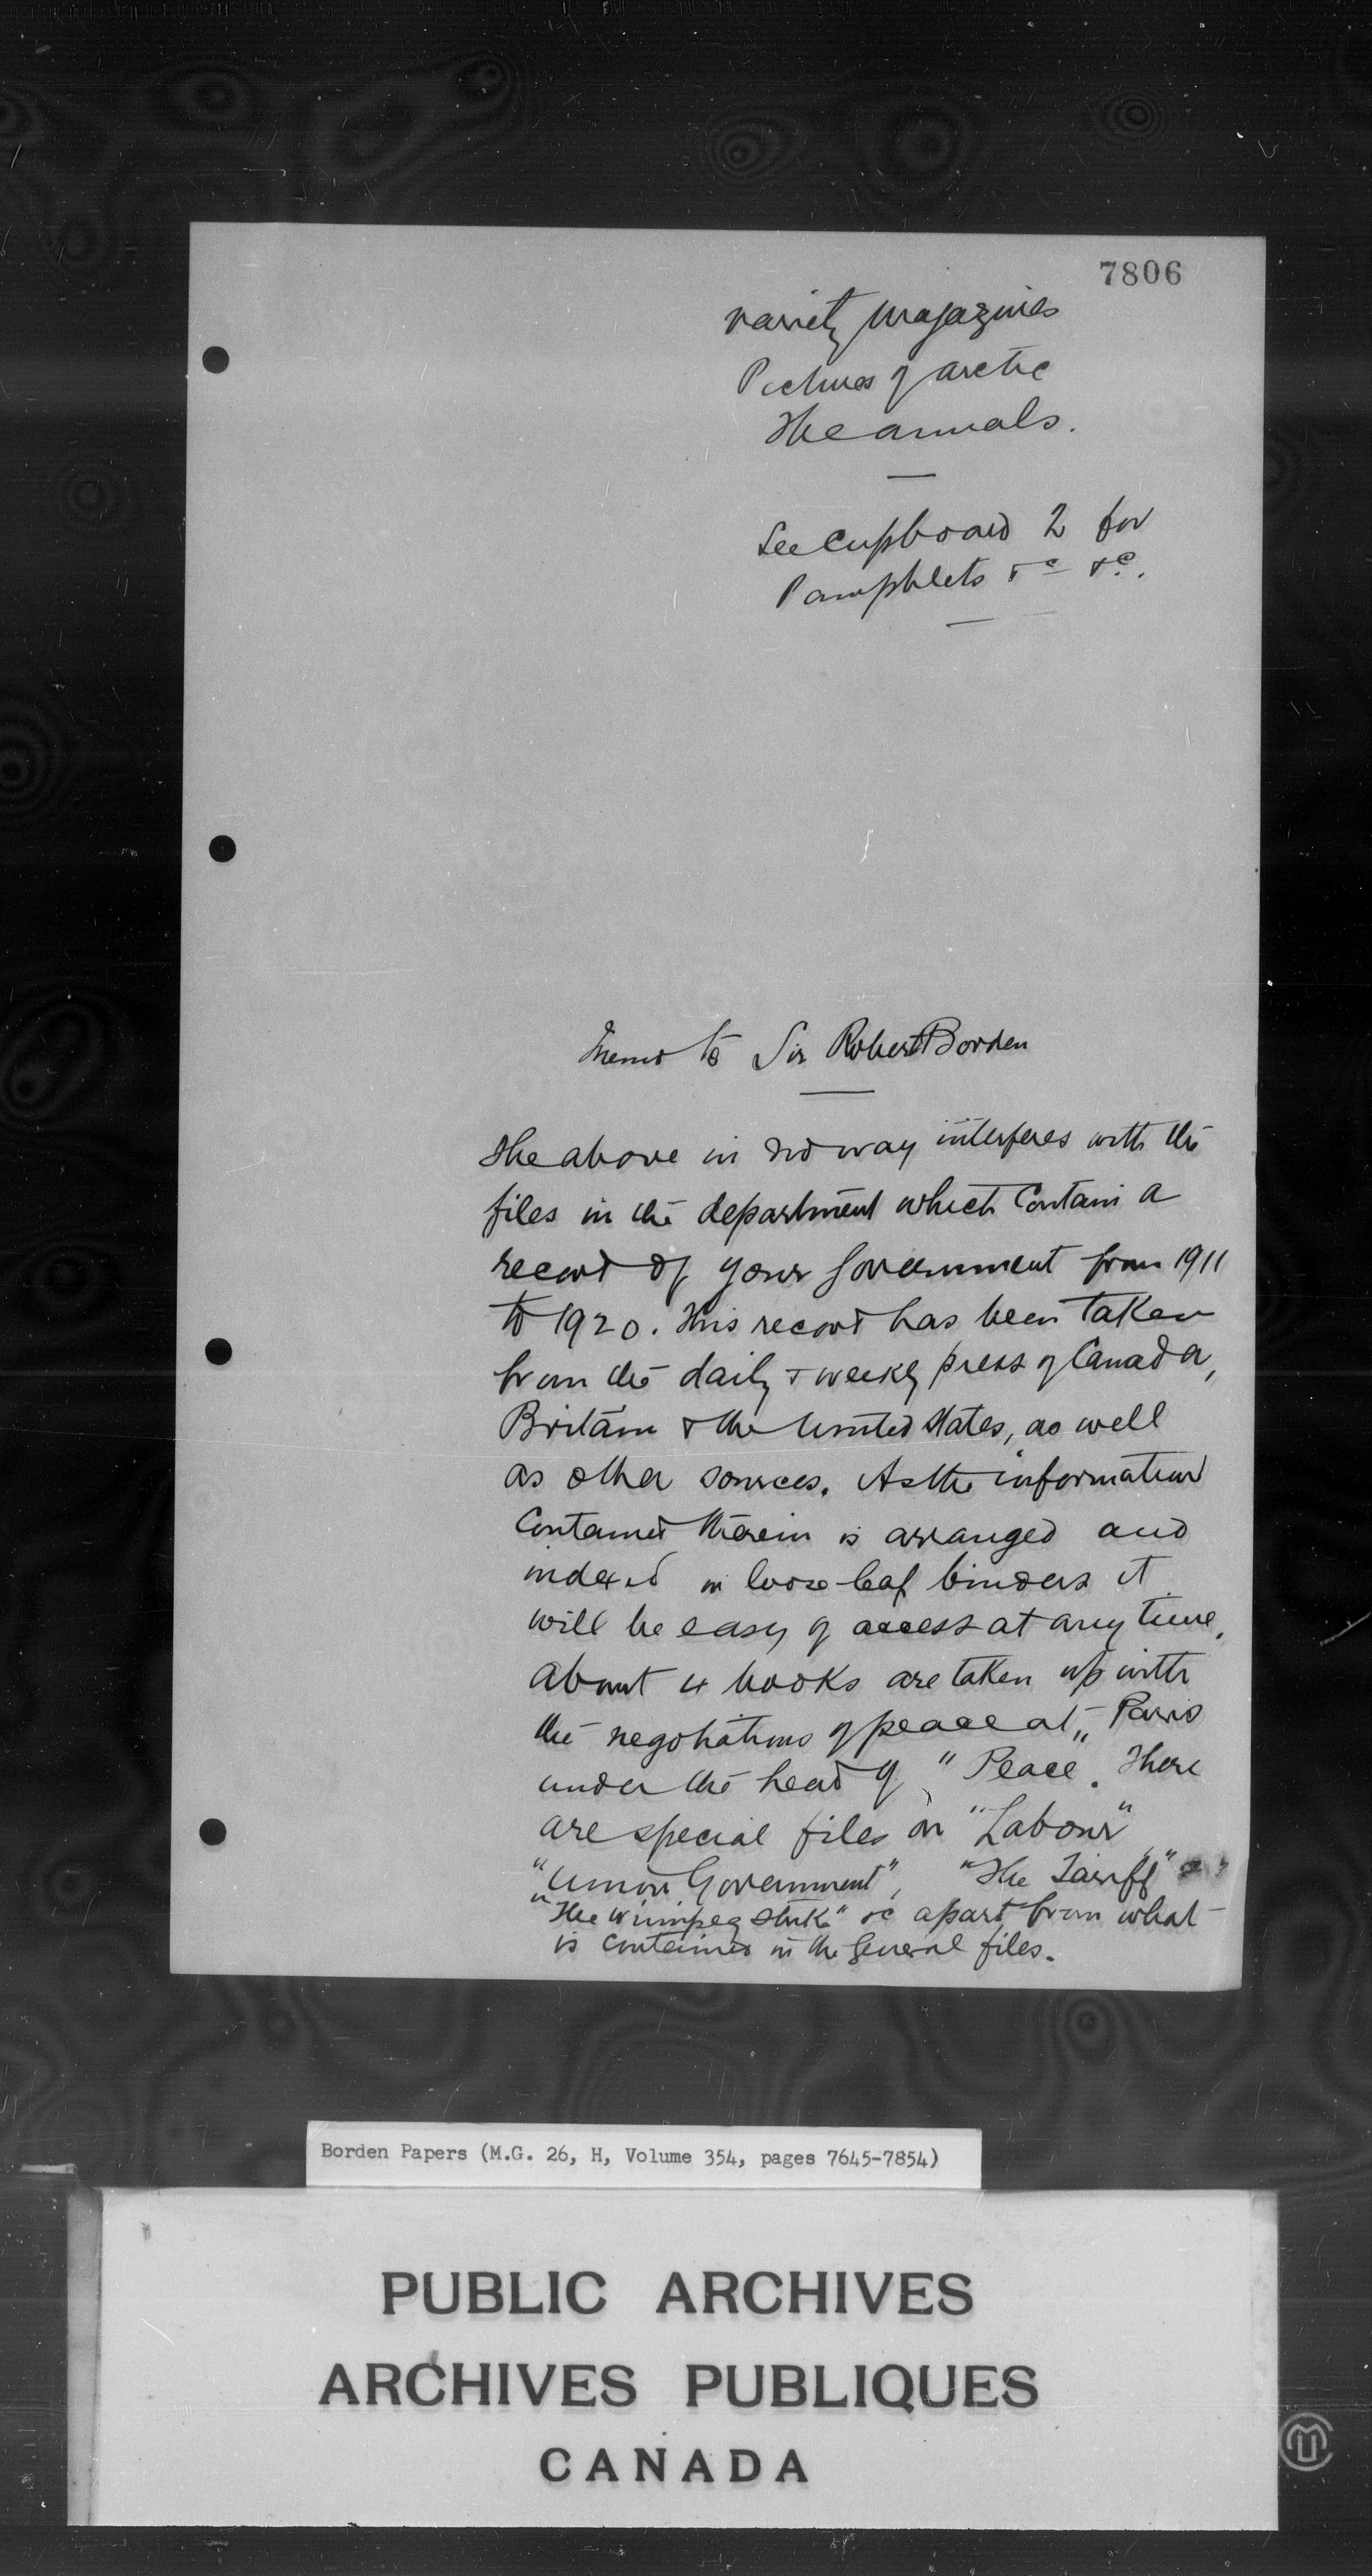 7806
variety magazines
Pictures of arctic
The annuals.
See Cupboard 2 for
Pamphlets &c &c.
Memo to Sir Robert Borden
The above in no way interferes with the
files in the department which Contain a
record of your Government from 1911
to 1920. This record has been taken
from the daily & weekly press of Canada,
Britain & the United States, as well
as other sources. As the information
Contained therein is arranged and
indexed in loose-leaf binders it
will be easy of access at any time.
About 4 books are taken up with
the negotiations of peace at Paris
under the head of "Peace". There
are special files on "Labour"
"Union Government", "The Tariff"
"The Winnipeg Strike" &c apart from what
is contained in the General files.
Borden Papers (M.G. 26, H, Volume 354, pages 7645-7854)
PUBLIC ARCHIVES
ARCHIVES PUBLIQUES
CANADA